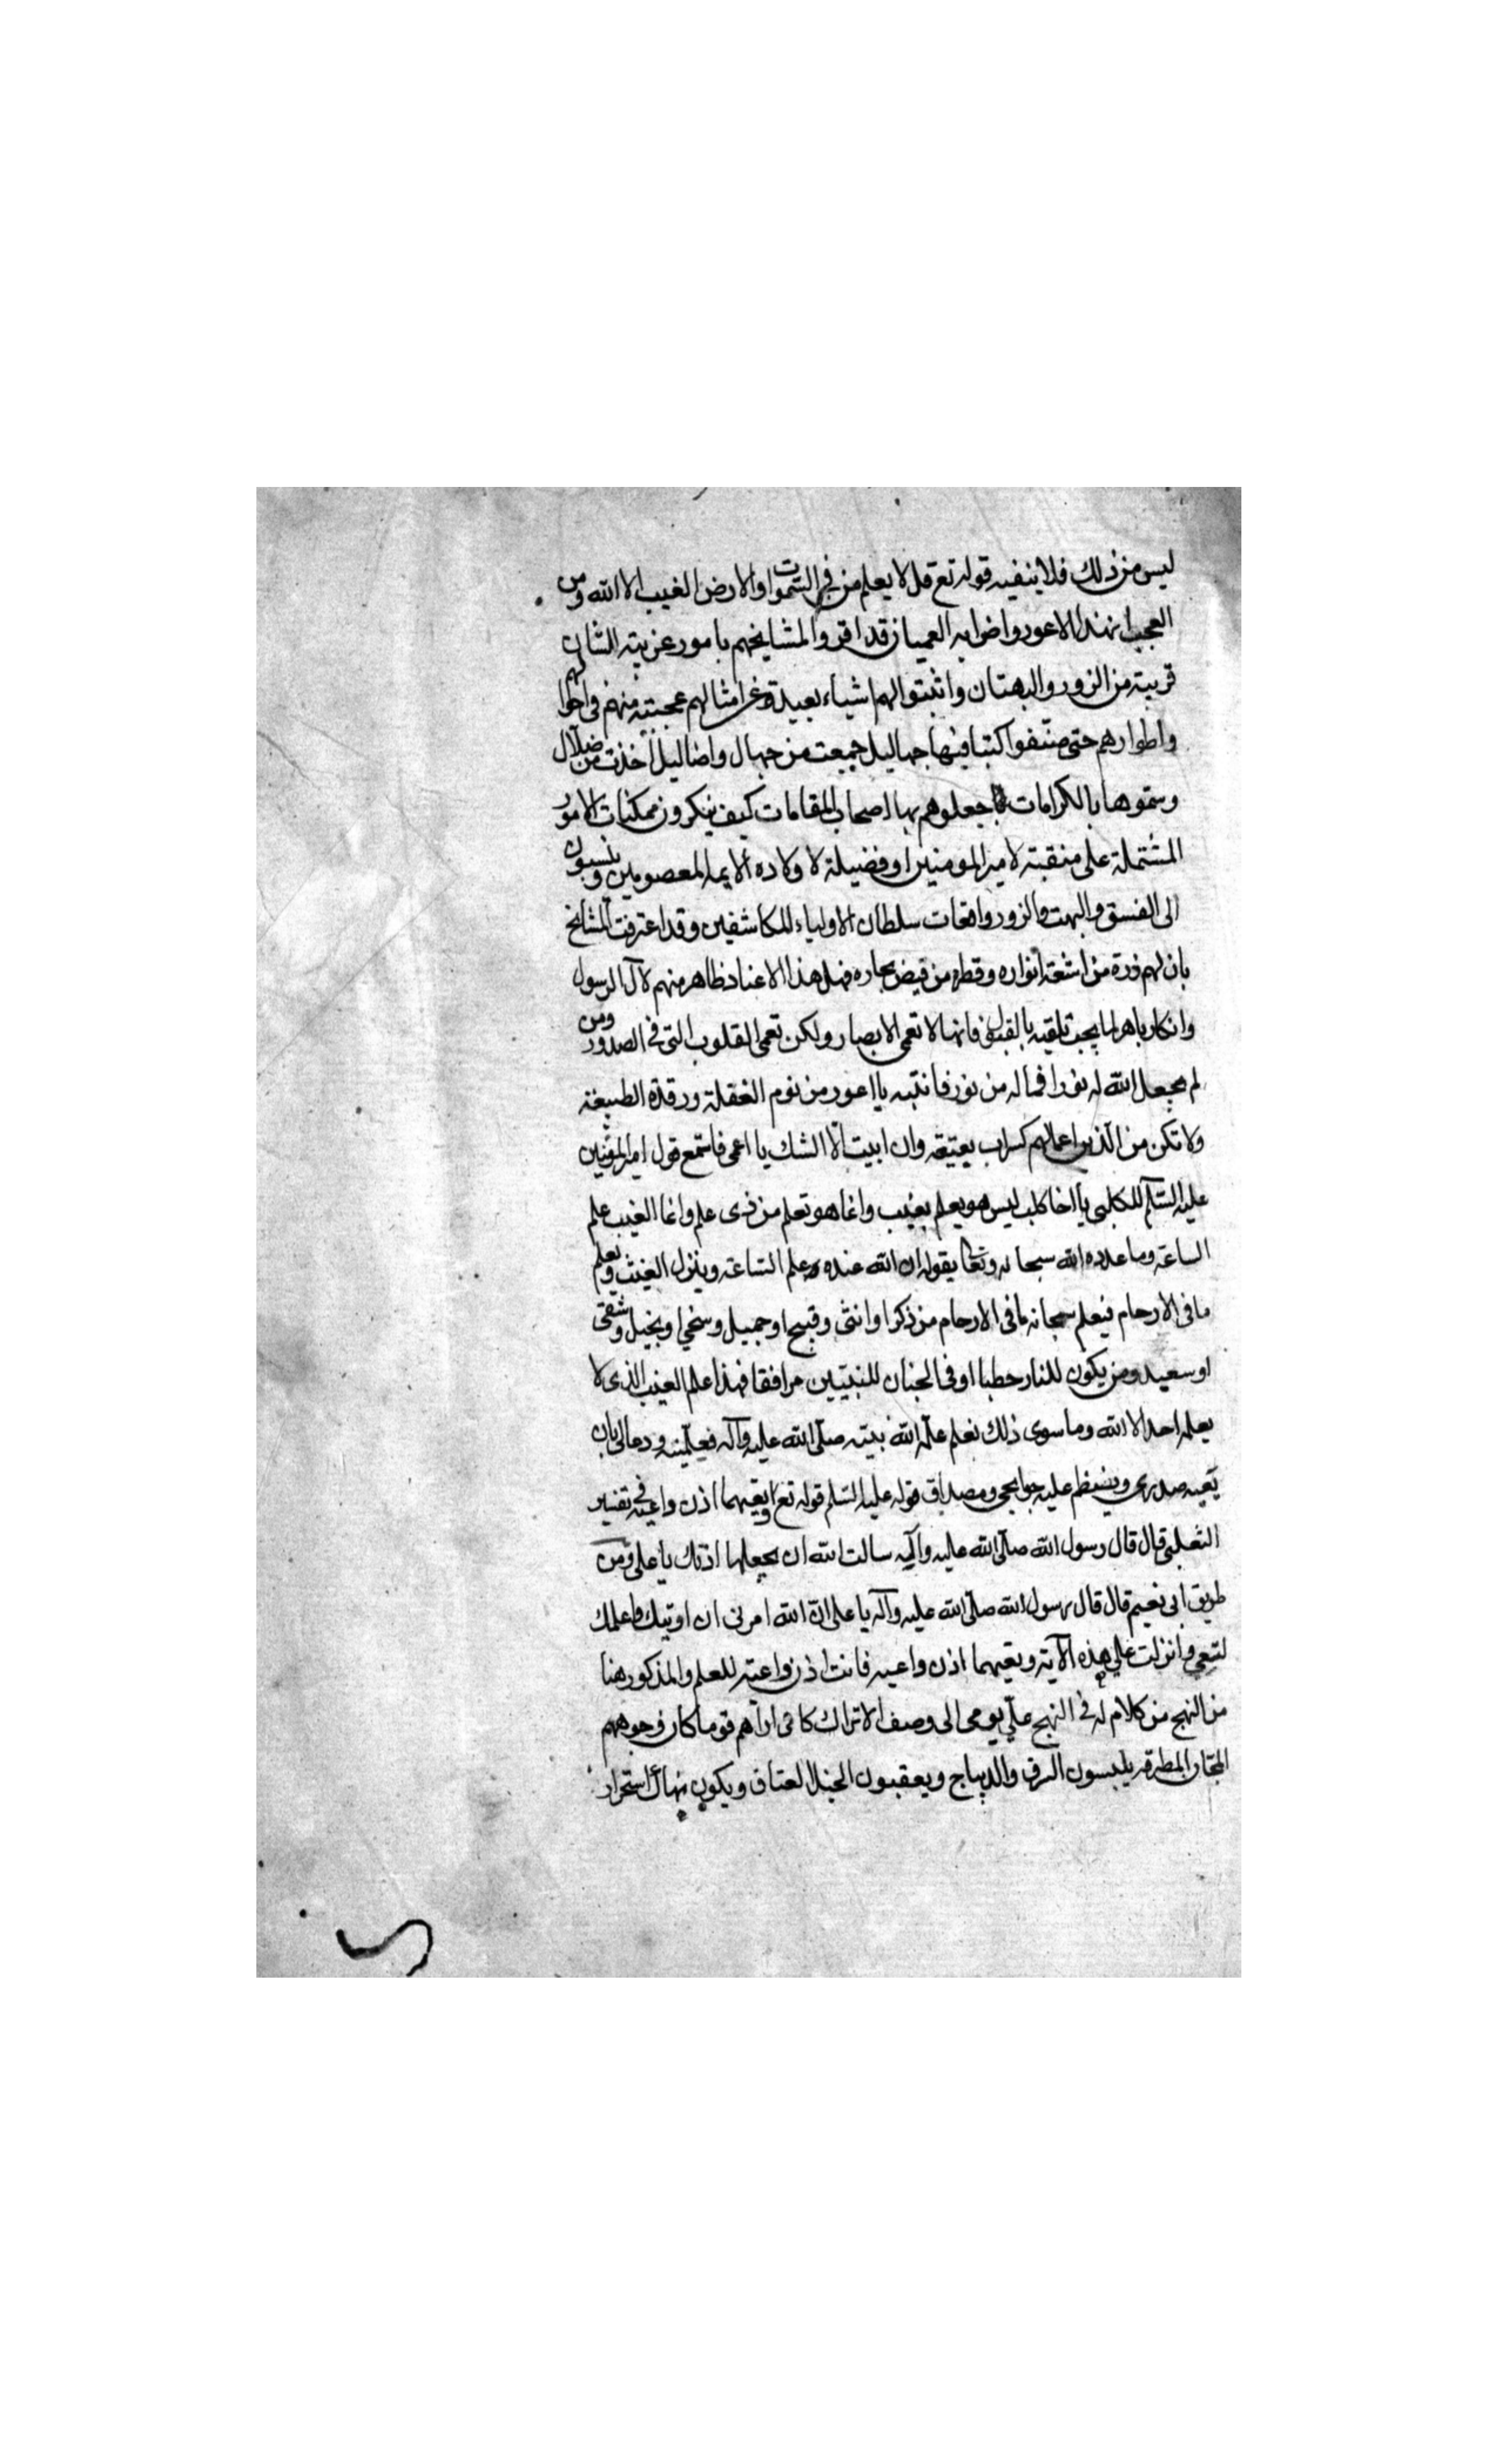 ليس من ذلك فلا ينفيه قوله تع قل لا يعلم من في السموات والارض الغيب الا الله ومن
العجب ان هذا الاعور واضرابه العميان قد اقروا لمشايخهم بامور غريبة الشان
قريبة من الزور والبهتان واثبتوا لهم اشياء بعيدة عن امثالهم عجيبة منهم في احوالهم
واطوارهم حتى صنفوا كتبا فيها جهاليل جمعت من جهال واضاليل اخذت من ضلال
وسموها بالكرامات جعلوهم بها اصحاب المقامات كيف ينكرون ممكنات الامور
المشتملة على منقبة لامير المومنين او فضيلة لاولاده الايمة المعصومين وينسبون
الى الفسق والبهت والزور واقعات سلطان الاولياء المكاشفين وقد اعترفت المشايخ
بان لهم ذرة من اشعة انواره وقطرة من فيض بحاره فهل هذا الا عناد ظاهر منهم لآل الرسول
وانكار باهر لما يجب تلقيه بالقبول فانها لا تعمى الابصار ولكن تعمى القلوب التي في الصدور ومن
لم يجعل الله له نورا فما له من نور فانتبه يا اعور من نوم الغفلة ورقدة الطبيعة
ولا تكن من الذين اعمالهم كسراب بقيعة وان ابيت الا الشك يا اعمى فاستمع قول امير المؤمنين
عليه السلم للكلبى يا اخا كلب ليس هو بعلم بغيب وانما هو تعلم من ذى علم وانما الغيب علم
الساعة وما عدده الله سبحانه وتعا بقوله ان الله عنده علم الساعة وينزل الغيث ويعلم
ما فى الارحام فيعلم سبحانه ما فى الارحام من ذكر او انثى وقبيح او جميل وسخي او بخيل وشقى
او سعيد ومن يكون للنار حطبا او في الجنان للنبيين مرافقا فهذا علم الغيب الذى لا
يعلمه احد الا الله وما سوى ذلك فعلم علمه الله نبيه صلى الله عليه وآله فعلمنيه ودعا لي بان
يعيه صدرى ويضطم عليه جوانحي ومصداق قوله عليه السلم قوله تع وتعيها اذن واعية في تفسير
الثعلبي قال قال رسول الله صلى الله عليه وآله سالت الله ان يجعلها اذنك يا على ومن
طريق ابى نعيم قال قال رسول الله صلى الله عليه وآله يا على ان الله امرنى ان ادنيك واعلمك
لتعي وانزلت علي هذه الآية وتعيها اذن واعيه فانت اذن واعية للعلم والمذكور هنا
من النهج من كلام له في النهج يومى الى وصف الاتراك كاني اراهم قوما كان وجوههم
المجان المطرقة يلبسون السرق والديباج ويعتقبون الخيل العتاق ويكون هناك استحرار